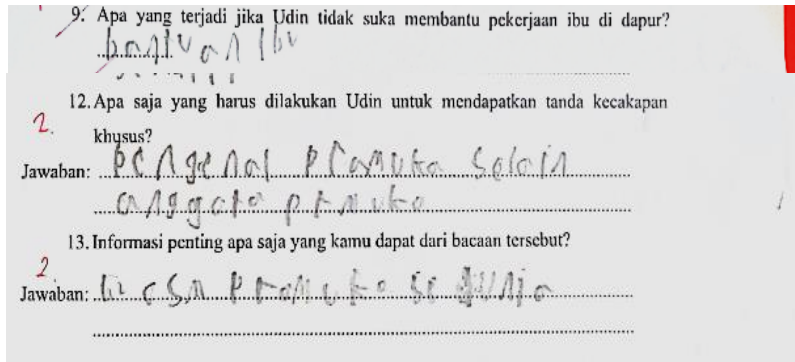 9. Apa yang terjadi jika Udin tidak suka membantu pekerjaan ibu di dapur?
bantuan ibu
12. Apa saja yang harus dilakukan Udin untuk mendapatkan tanda kecakapan
2.
khusus?
Jawaban: pengenal pramuka selain
anggota pramuka
13. Informasi penting apa saja yang kamu dapat dari bacaan tersebut?
2.
Jawaban: